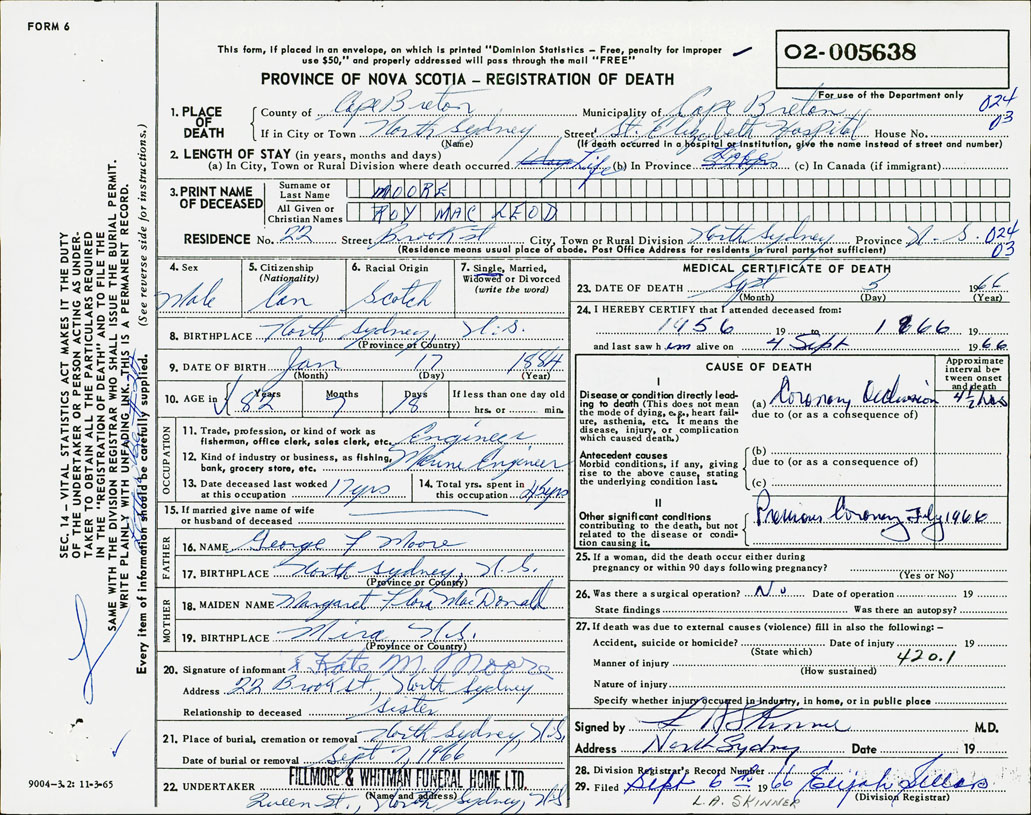 FORM 6
This form, if placed in an envelope, on which is printed "Dominion Statistics – Free, penalty for improper
use $50," and properly addressed will pass through the mail "FREE"
02-005638
PROVINCE OF NOVA SCOTIA – REGISTRATION OF DEATH
For use of the Department only
024
03
1. PLACE OF DEATH
County of Cape Breton Municipality of Cape Breton
If in City or Town North Sydney Street St. Elizabeth Hospital House No.
(Name) (If death occurred in a hospital or institution, give the name instead of street and number)
2. LENGTH OF STAY (in years, months and days)
(a) In City, Town or Rural Division where death occurred Life (b) In Province (c) In Canada (if immigrant)
3. PRINT NAME OF DECEASED
Surname or Last Name MOORE
All Given or Christian Names ROY MAC LEOD
RESIDENCE No. 22 Street Brook St City, Town or Rural Division North Sydney Province N.S. 024
03
(Residence means usual place of abode. Post Office Address for residents in rural parts not sufficient)
4. Sex Male
5. Citizenship (Nationality) Can
6. Racial Origin Scotch
7. Single, Married, Widowed or Divorced (write the word)
8. BIRTHPLACE North Sydney, N.S.
(Province or Country)
9. DATE OF BIRTH Jan 17 1884
(Month) (Day) (Year)
10. AGE in Years 82 Months 7 Days 18 If less than one day old
hrs. or min.
OCCUPATION
11. Trade, profession, or kind of work as
fisherman, office clerk, sales clerk, etc. Engineer
12. Kind of industry or business, as fishing,
bank, grocery store, etc. Marine Engineer
13. Date deceased last worked
at this occupation 17 yrs
14. Total yrs. spent in
this occupation 45 yrs
15. If married give name of wife
or husband of deceased
FATHER
16. NAME George F Moore
17. BIRTHPLACE North Sydney, N.S.
(Province or Country)
MOTHER
18. MAIDEN NAME Margaret Flora MacDonald
19. BIRTHPLACE Mira, N.S.
(Province or Country)
20. Signature of informant Kate M. Moore
Address 22 Brook St., North Sydney
Relationship to deceased Sister
21. Place of burial, cremation or removal North Sydney, N.S.
Date of burial or removal Sept 7, 1966
22. UNDERTAKER FILLMORE & WHITMAN FUNERAL HOME LTD.
(Name and address)
Queen St., North Sydney, N.S
MEDICAL CERTIFICATE OF DEATH
23. DATE OF DEATH Sept 5 1966
(Month) (Day) (Year)
24. I HEREBY CERTIFY that I attended deceased from:
1956 19 to 1966 19
and last saw him alive on 4 Sept 1966
CAUSE OF DEATH
Approximate interval between onset and death
I
Disease or condition directly leading to death (This does not mean the mode of dying, e.g., heart failure, asthenia, etc. It means the disease, injury, or complication which caused death.)
(a) Coronary Occlusion 4½ hrs
due to (or as a consequence of)
Antecedent causes
Morbid conditions, if any, giving rise to the above cause, stating the underlying condition last.
(b)
due to (or as a consequence of)
(c)
II
Other significant conditions
contributing to the death, but not related to the disease or condition causing it.
Previous Coronary 1966
25. If a woman, did the death occur either during
pregnancy or within 90 days following pregnancy?
(Yes or No)
26. Was there a surgical operation? No Date of operation 19
State findings Was there an autopsy?
27. If death was due to external causes (violence) fill in also the following: –
Accident, suicide or homicide? Date of injury 19
(State which)
Manner of injury 420.1
(How sustained)
Nature of injury
Specify whether injury occurred in Industry, in home, or in public place
Signed by L A Skinner M.D.
Address North Sydney Date 19
28. Division Registrar's Record Number
29. Filed Sept 6th 1966 Elijah Sellars
(Division Registrar)
L.A. SKINNER
SEC. 14 – VITAL STATISTICS ACT MAKES IT THE DUTY
OF THE UNDERTAKER OR PERSON ACTING AS UNDER-
TAKER TO OBTAIN ALL THE PARTICULARS REQUIRED
IN THE "REGISTRATION OF DEATH" AND TO FILE THE
SAME WITH THE DIVISION REGISTRAR WHO SHALL ISSUE THE BURIAL PERMIT.
WRITE PLAINLY WITH UNFADING INK. THIS IS A PERMANENT RECORD.
Every item of information should be carefully supplied. (See reverse side for instructions.)
9004-3.2: 11-3-65